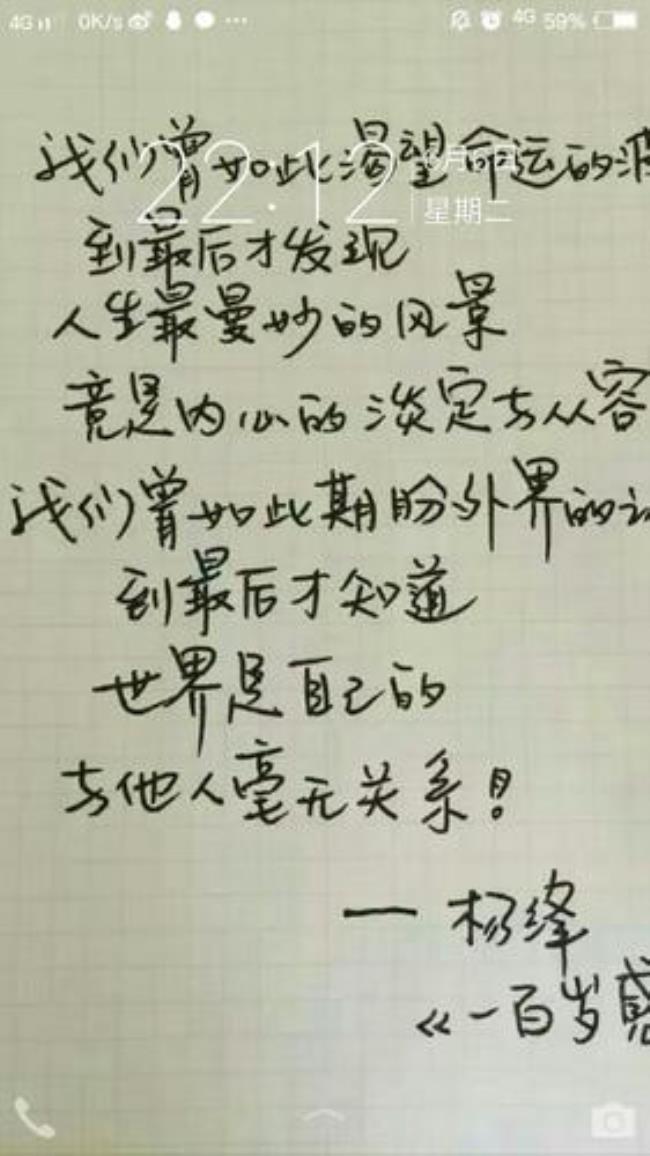 4G 0K/s ... 4G 59%
22:12
星期二
我们曾如此渴望命运的
到最后才发现
人生最曼妙的风景
竟是内心的淡定与从容
我们曾如此期盼外界的
到最后才知道
世界是自己的
与他人毫无关系!
— 杨绛
《一百岁感